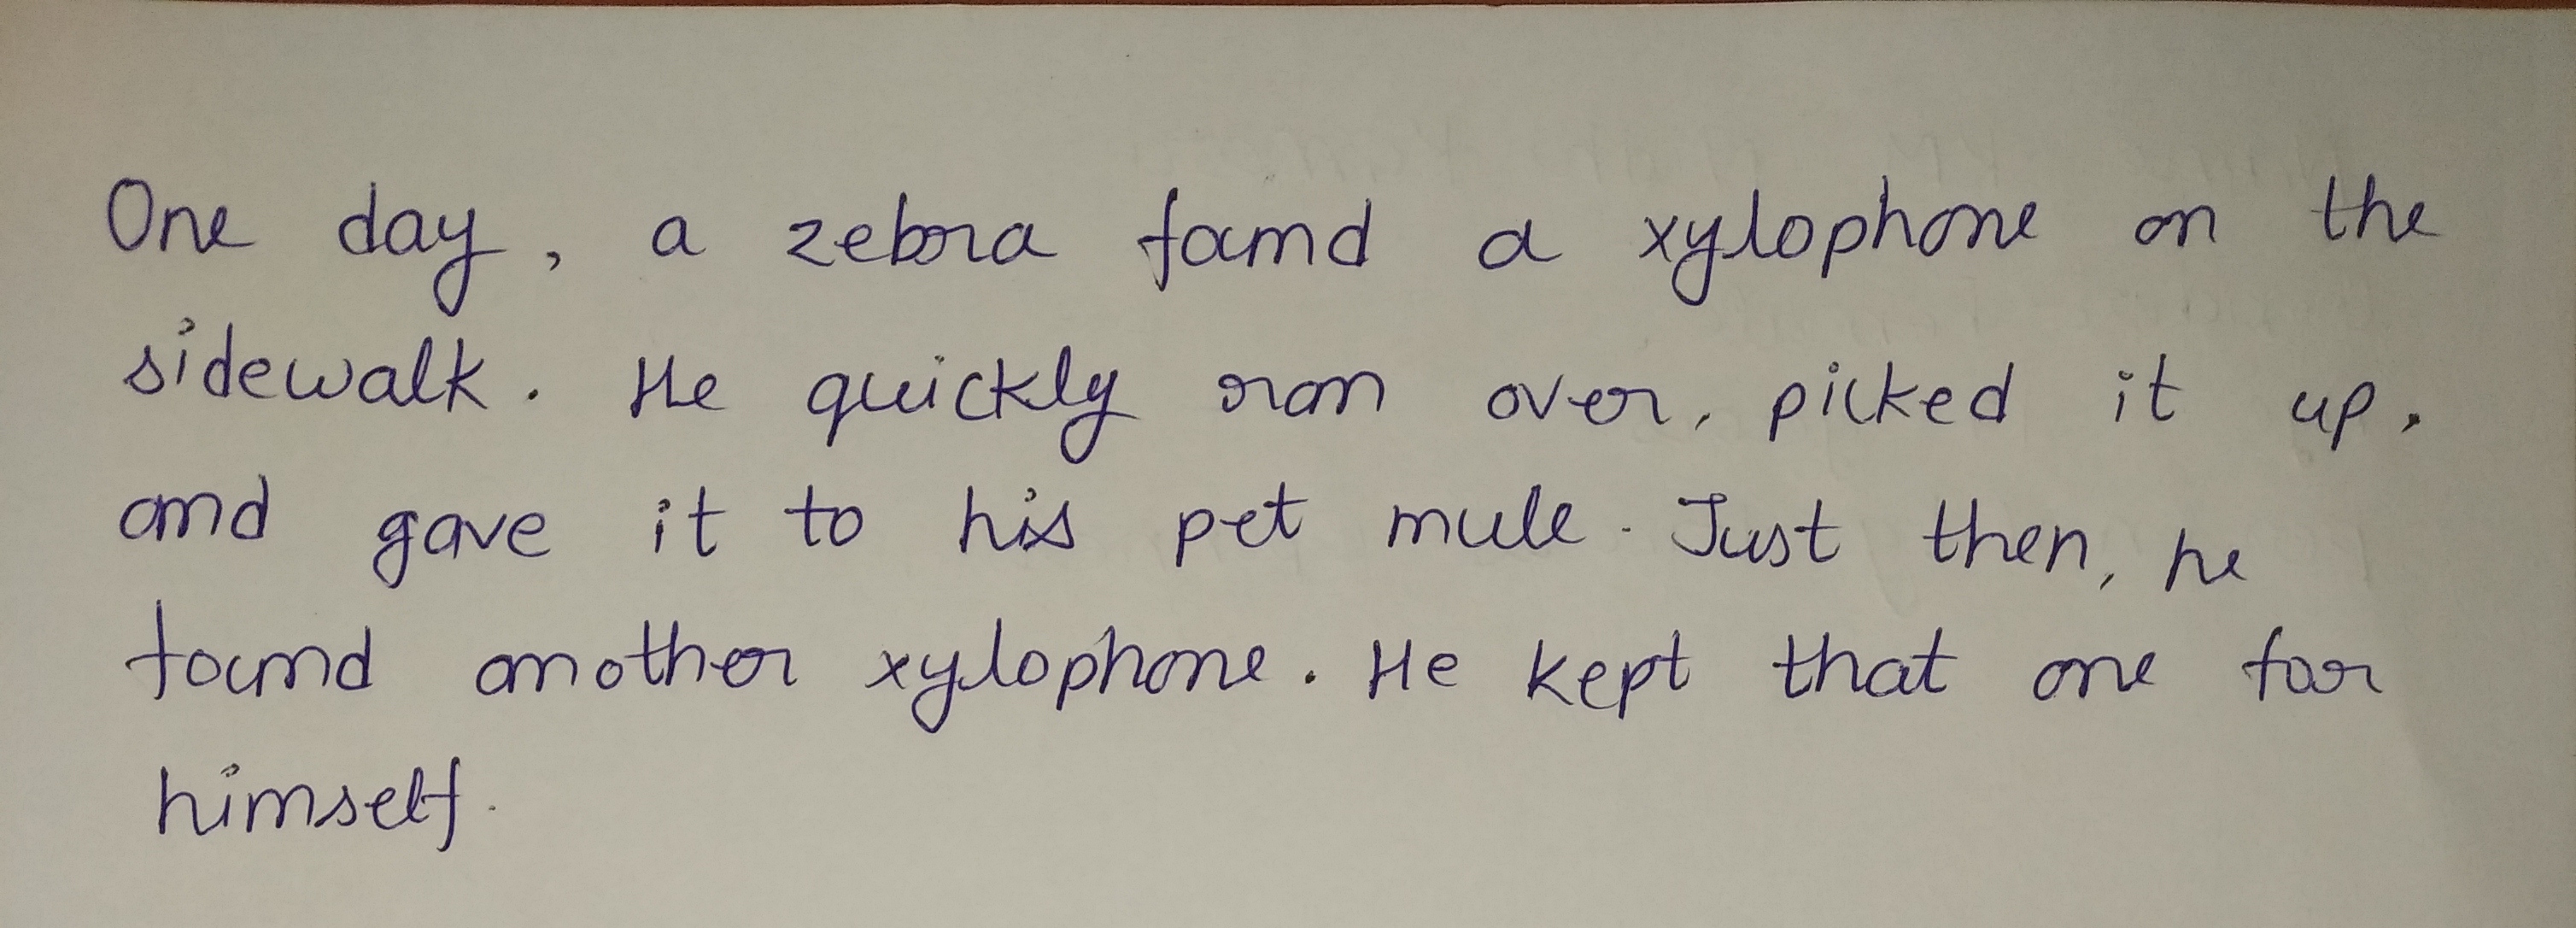 One day, a zebra found a xylophone on the
sidewalk. He quickly ran over, picked it up,
and gave it to his pet mule. Just then, he
found another xylophone. He kept that one for
himself.